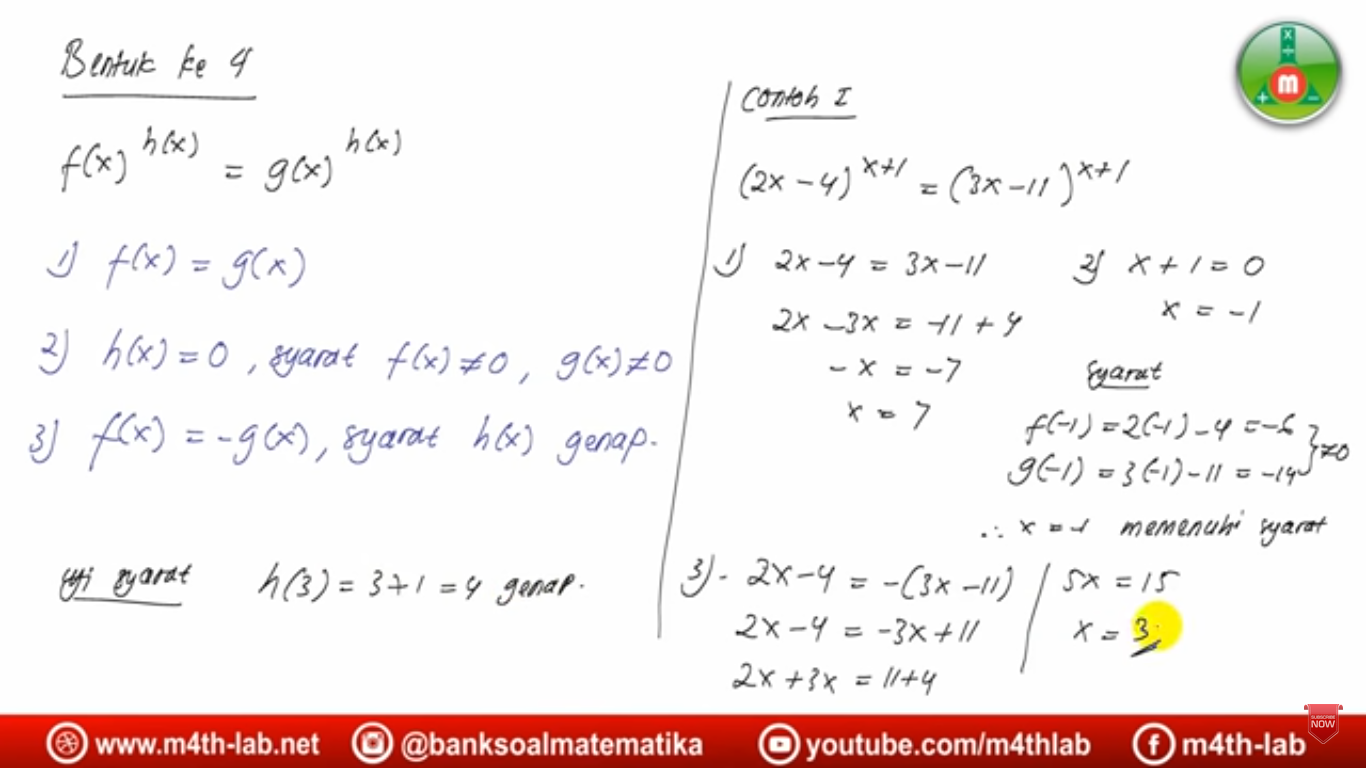 Bentuk ke 4
f(x)^h(x) = g(x)^h(x)
1) f(x) = g(x)
2) h(x) = 0 , syarat f(x) ≠ 0 , g(x) ≠ 0
3) f(x) = -g(x), syarat h(x) genap.
uji syarat h(3) = 3+1 = 4 genap.
Contoh I
(2x-4)^x+1 = (3x-11)^x+1
1) 2x-4 = 3x-11
2x-3x = -11+4
-x = -7
x = 7
2) x+1 = 0
x = -1
syarat
f(-1) = 2(-1)-4 = -6
g(-1) = 3(-1)-11 = -14 } ≠0
∴ x = -1 memenuhi syarat
3). 2x-4 = -(3x-11)
2x-4 = -3x+11
2x+3x = 11+4
5x = 15
x = 3
x
÷
m
+ -
SUBSCRIBE
NOW
www.m4th-lab.net @banksoalmatematika youtube.com/m4thlab m4th-lab